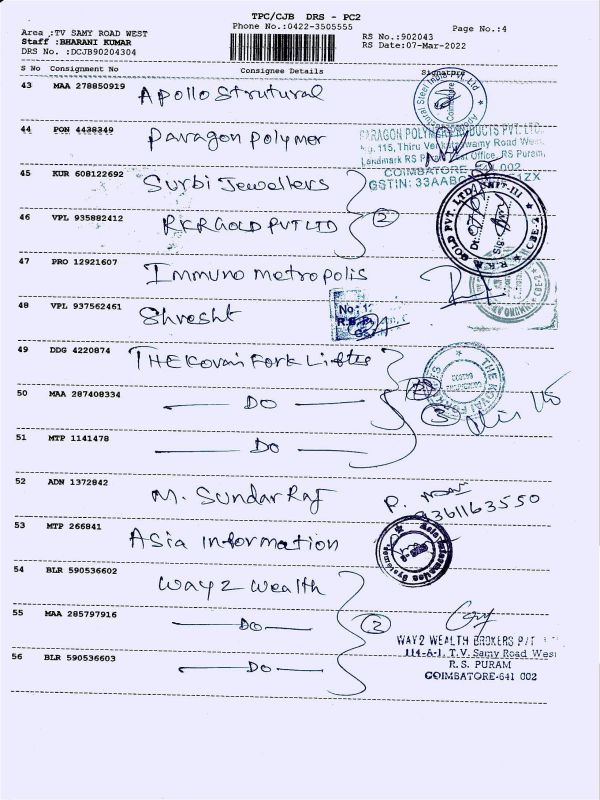 TPC/CJB DRS - PC2
Phone No.:0422-3505555
Page No.:4
Area :TV SAMY ROAD WEST
Staff :BHARANI KUMAR
DRS No. :DCJB90204304
RS No.:902043
RS Date:07-Mar-2022
S No Consignment No Consignee Details Signature
43 MAA 278850919 Apollo Strutural
44 PON 4438349 Paragon Polymer
PARAGON POLYMER PRODUCTS PVT. LTD.
115, Thiru Venkataswamy Road West
Landmark RS Post Office, RS Puram,
COIMBATORE 002
GSTIN: 33AABC 1ZX
45 KUR 608122692 Surbi Jewellers
46 VPL 935882412 RKR GOLD PVT LTD
2
GOLD PVT. LTD. UNIT-III
47 PRO 12921607 Immuno metropolis
48 VPL 937562461 Shresht
No: 1
49 DDG 4220874 THE Kovai Fork Lifts
THE KOVAI FORK
50 MAA 287408334 — DO —
3
51 MTP 1141478 — DO —
52 ADN 1372842 M. Sundar Raj
P.
9361163550
53 MTP 266841 Asia information
Asia Information Systems
54 BLR 590536602 Way 2 Wealth
55 MAA 285797916 — DO —
2
WAY2 WEALTH BROKERS P/T
114-A-1, T.V. Samy Road West
56 BLR 590536603 — DO —
R.S. PURAM
COIMBATORE-641 002